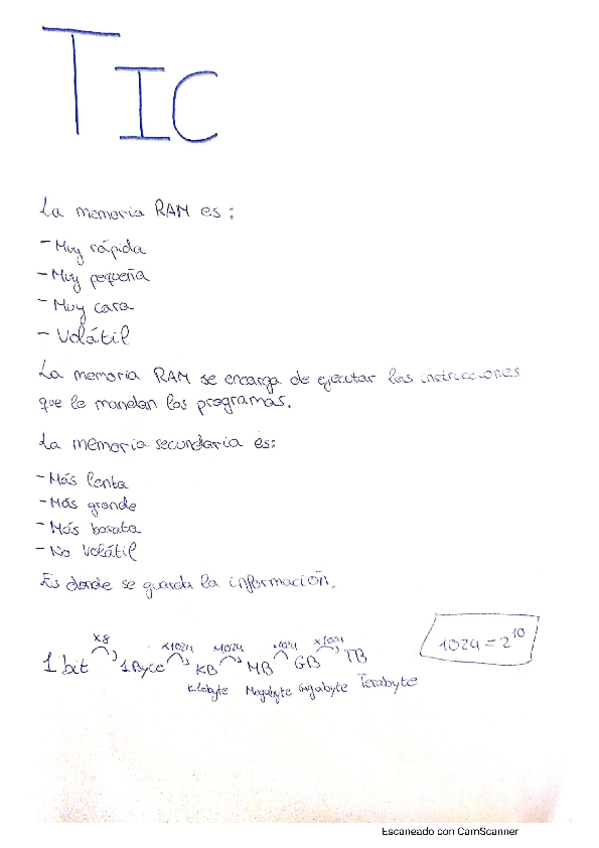 TIC
La memoria RAM es:
- Muy rápida
- Muy pequeña
- Muy cara
- Volátil
La memoria RAM se encarga de ejecutar las instrucciones
que le mandan los programas.
La memoria secundaria es:
- Más lenta
- Más grande
- Más barata
- No Volátil
Es donde se guarda la información.
x8 x1024 x1024 x1024 x1024
1 bit 1 Byte KB MB GB TB
Kilobyte Megabyte Gigabyte Terabyte
1024 = 2¹⁰
Escaneado con CamScanner